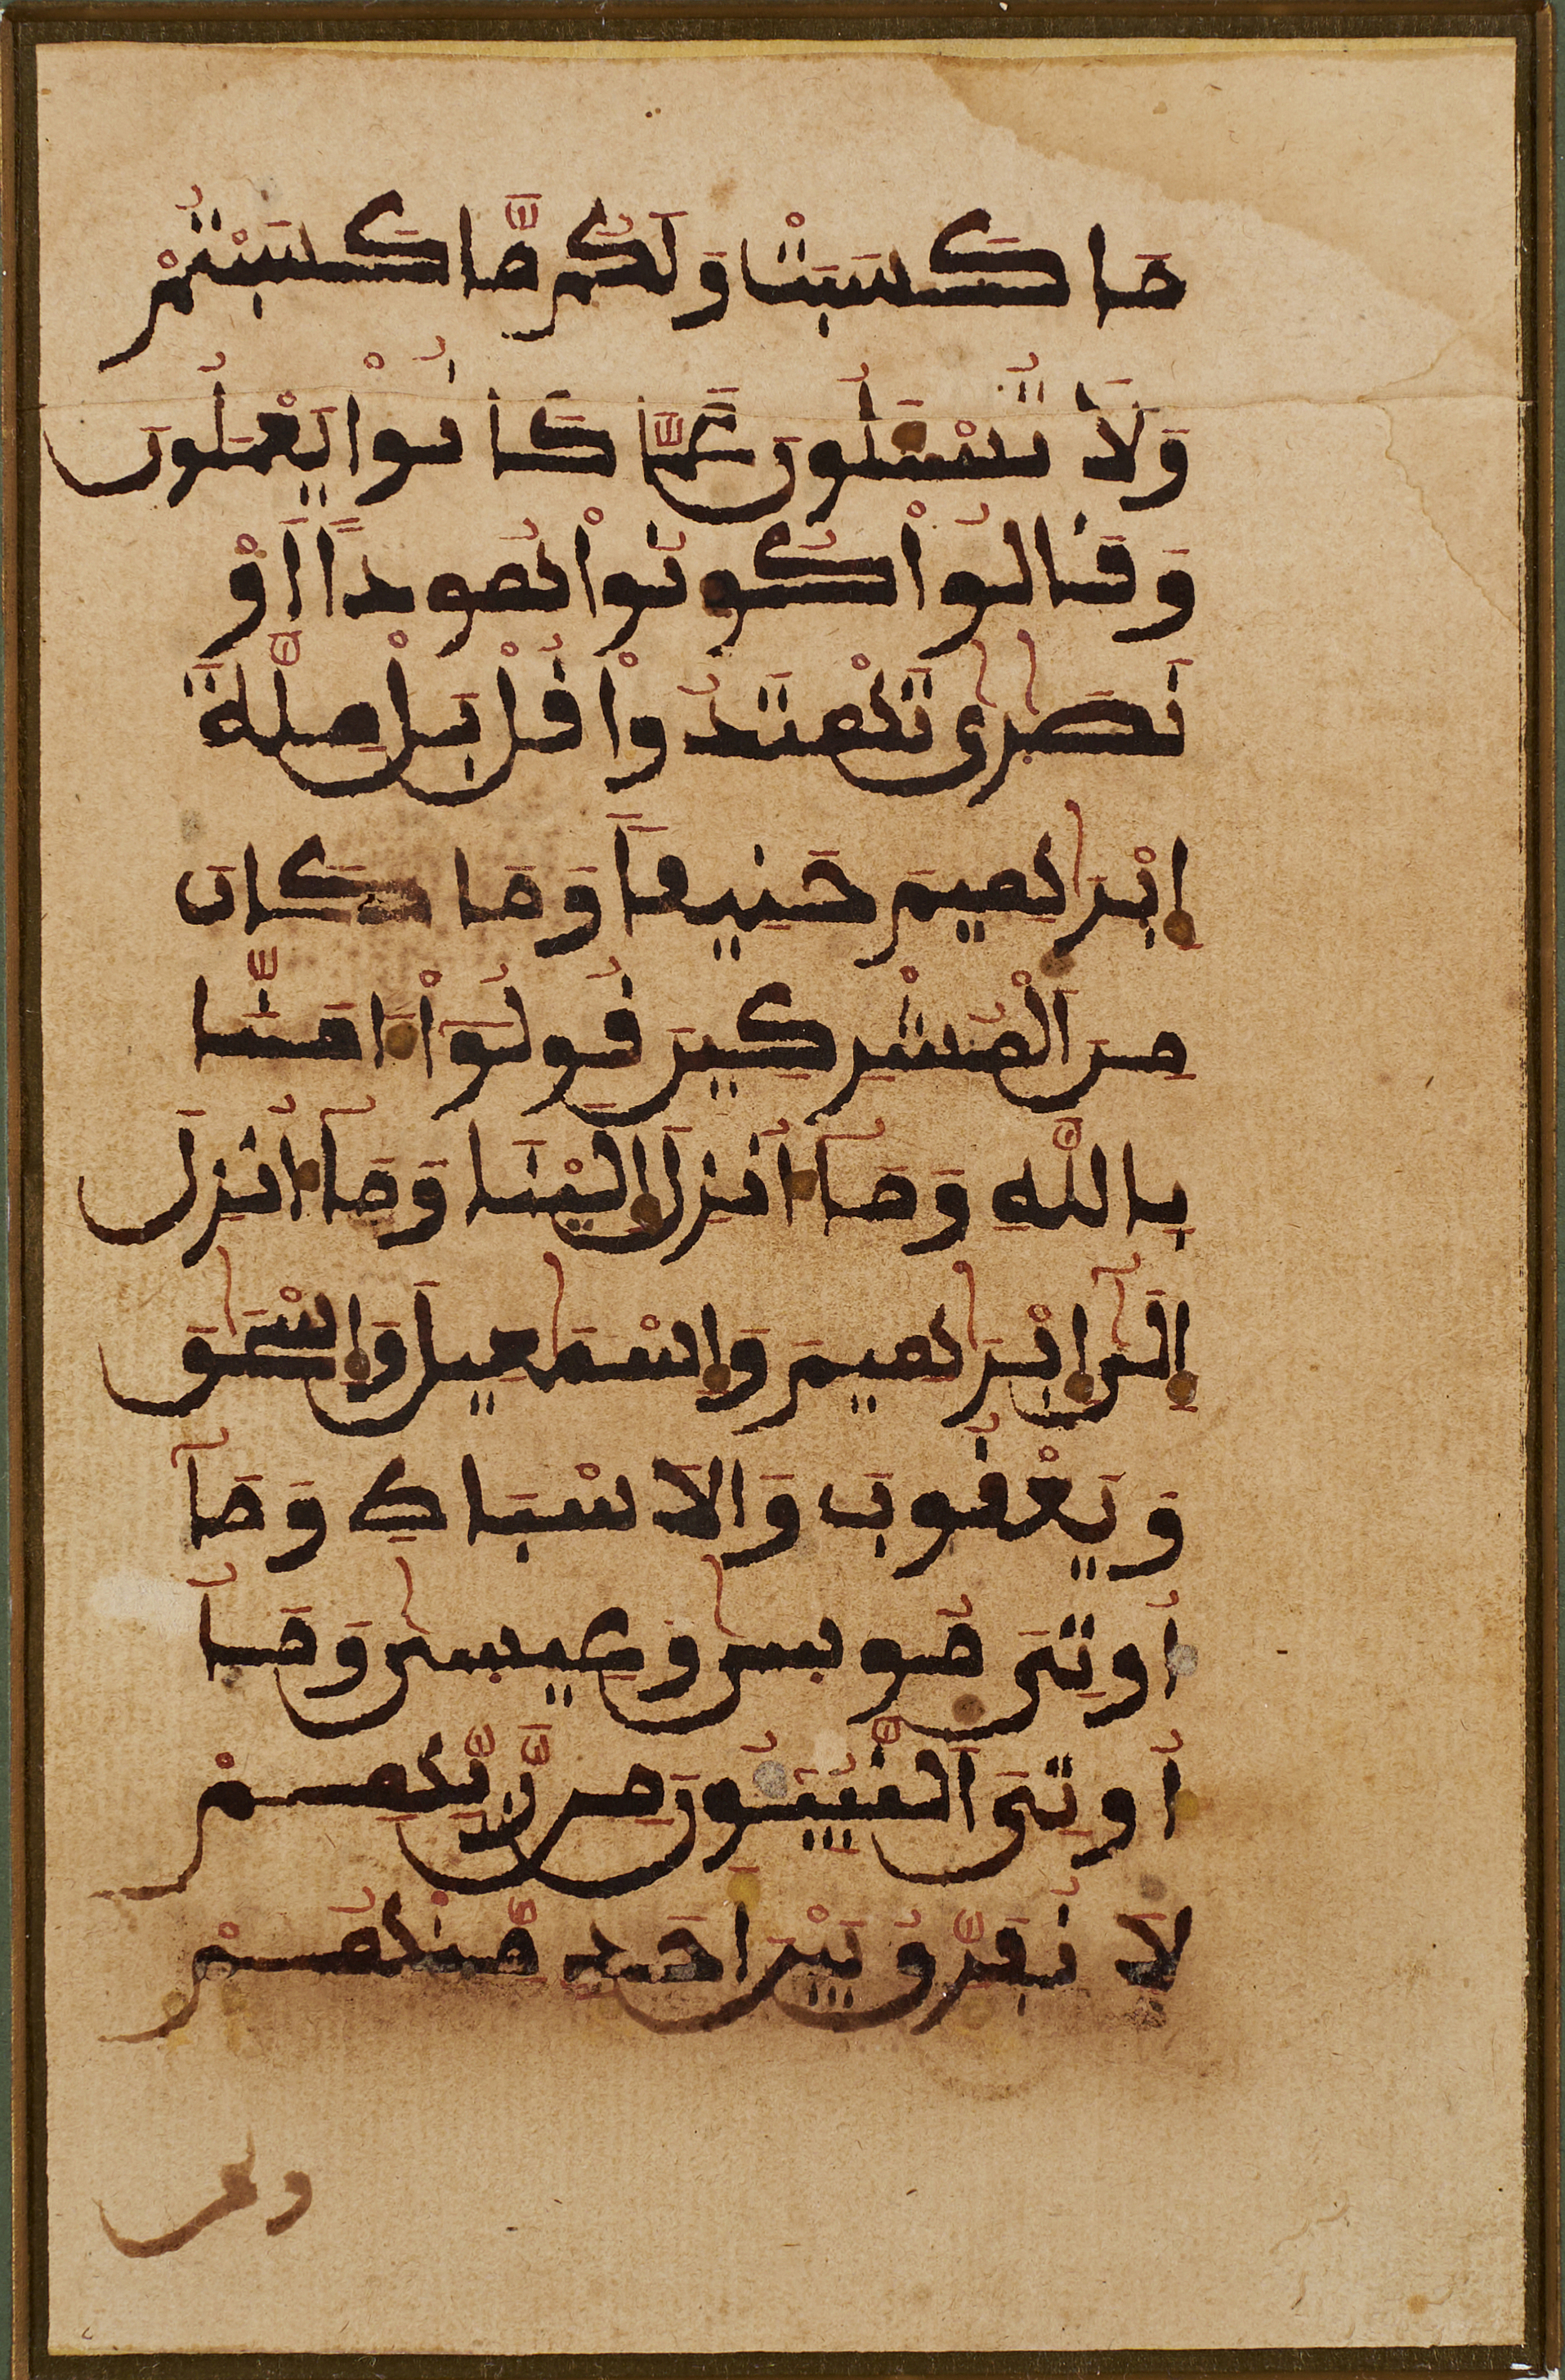 مَا كَسَبَتْ وَلَكُم مَّا كَسَبْتُمْ
وَلَا تُسْـَٔلُونَ عَمَّا كَانُوْا يَعْمَلُونَ
وَقَالُوْا كُونُوْا هُودًا اَوْ
نَصَٰرَىٰ تَهْتَدُوْا قُلْ بَلْ مِلَّةَ
إِبْرَٰهِيمَ حَنِيفًا وَمَا كَانَ
مِنَ اَلْمُشْرِكِينَ قُولُوْا ءَامَنَّا
بِاللَّهِ وَمَآ أُنزِلَ إِلَيْنَا وَمَآ أُنزِلَ
إِلَىٰٓ إِبْرَٰهِيمَ وَإِسْمَٰعِيلَ وَإِسْحَٰقَ
وَيَعْقُوبَ وَالَاسْبَاطِ وَمَآ
أُوتِىَ مُوسَىٰ وَعِيسَىٰ وَمَآ
أُوتِىَ اَلنَّبِيـُٔونَ مِن رَّبِّهِمْ
لَا نُفَرِّقُ بَيْنَ أَحَدٍ مِّنْهُمْ
ونحن